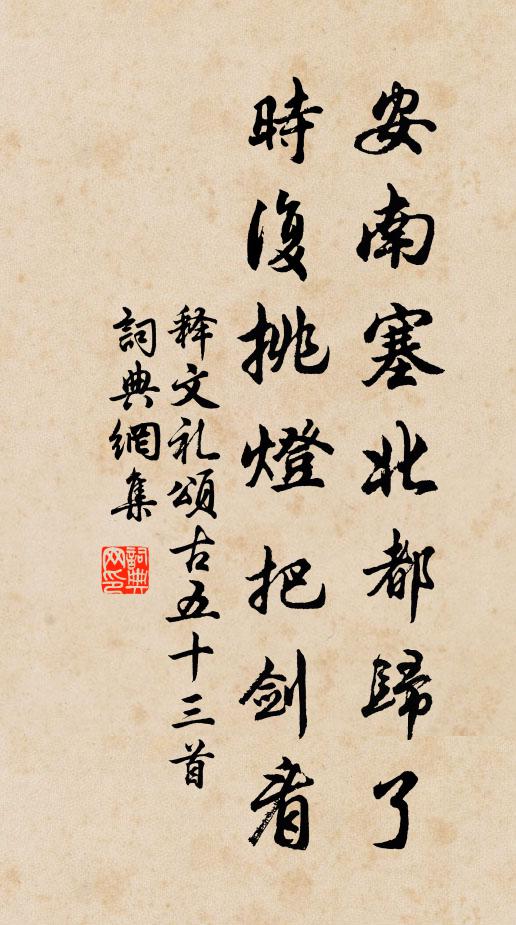 安南塞北都歸了
時復挑燈把劍看
释文礼頌古五十三首
詞典網集
詞典网印